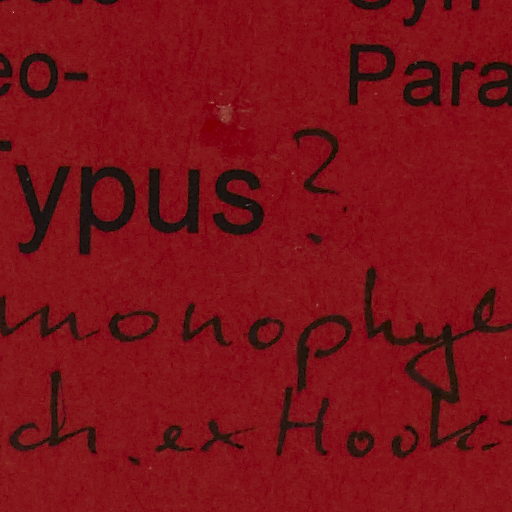 eo- Para
Typus ?
monophyl
ch. ex Hook.